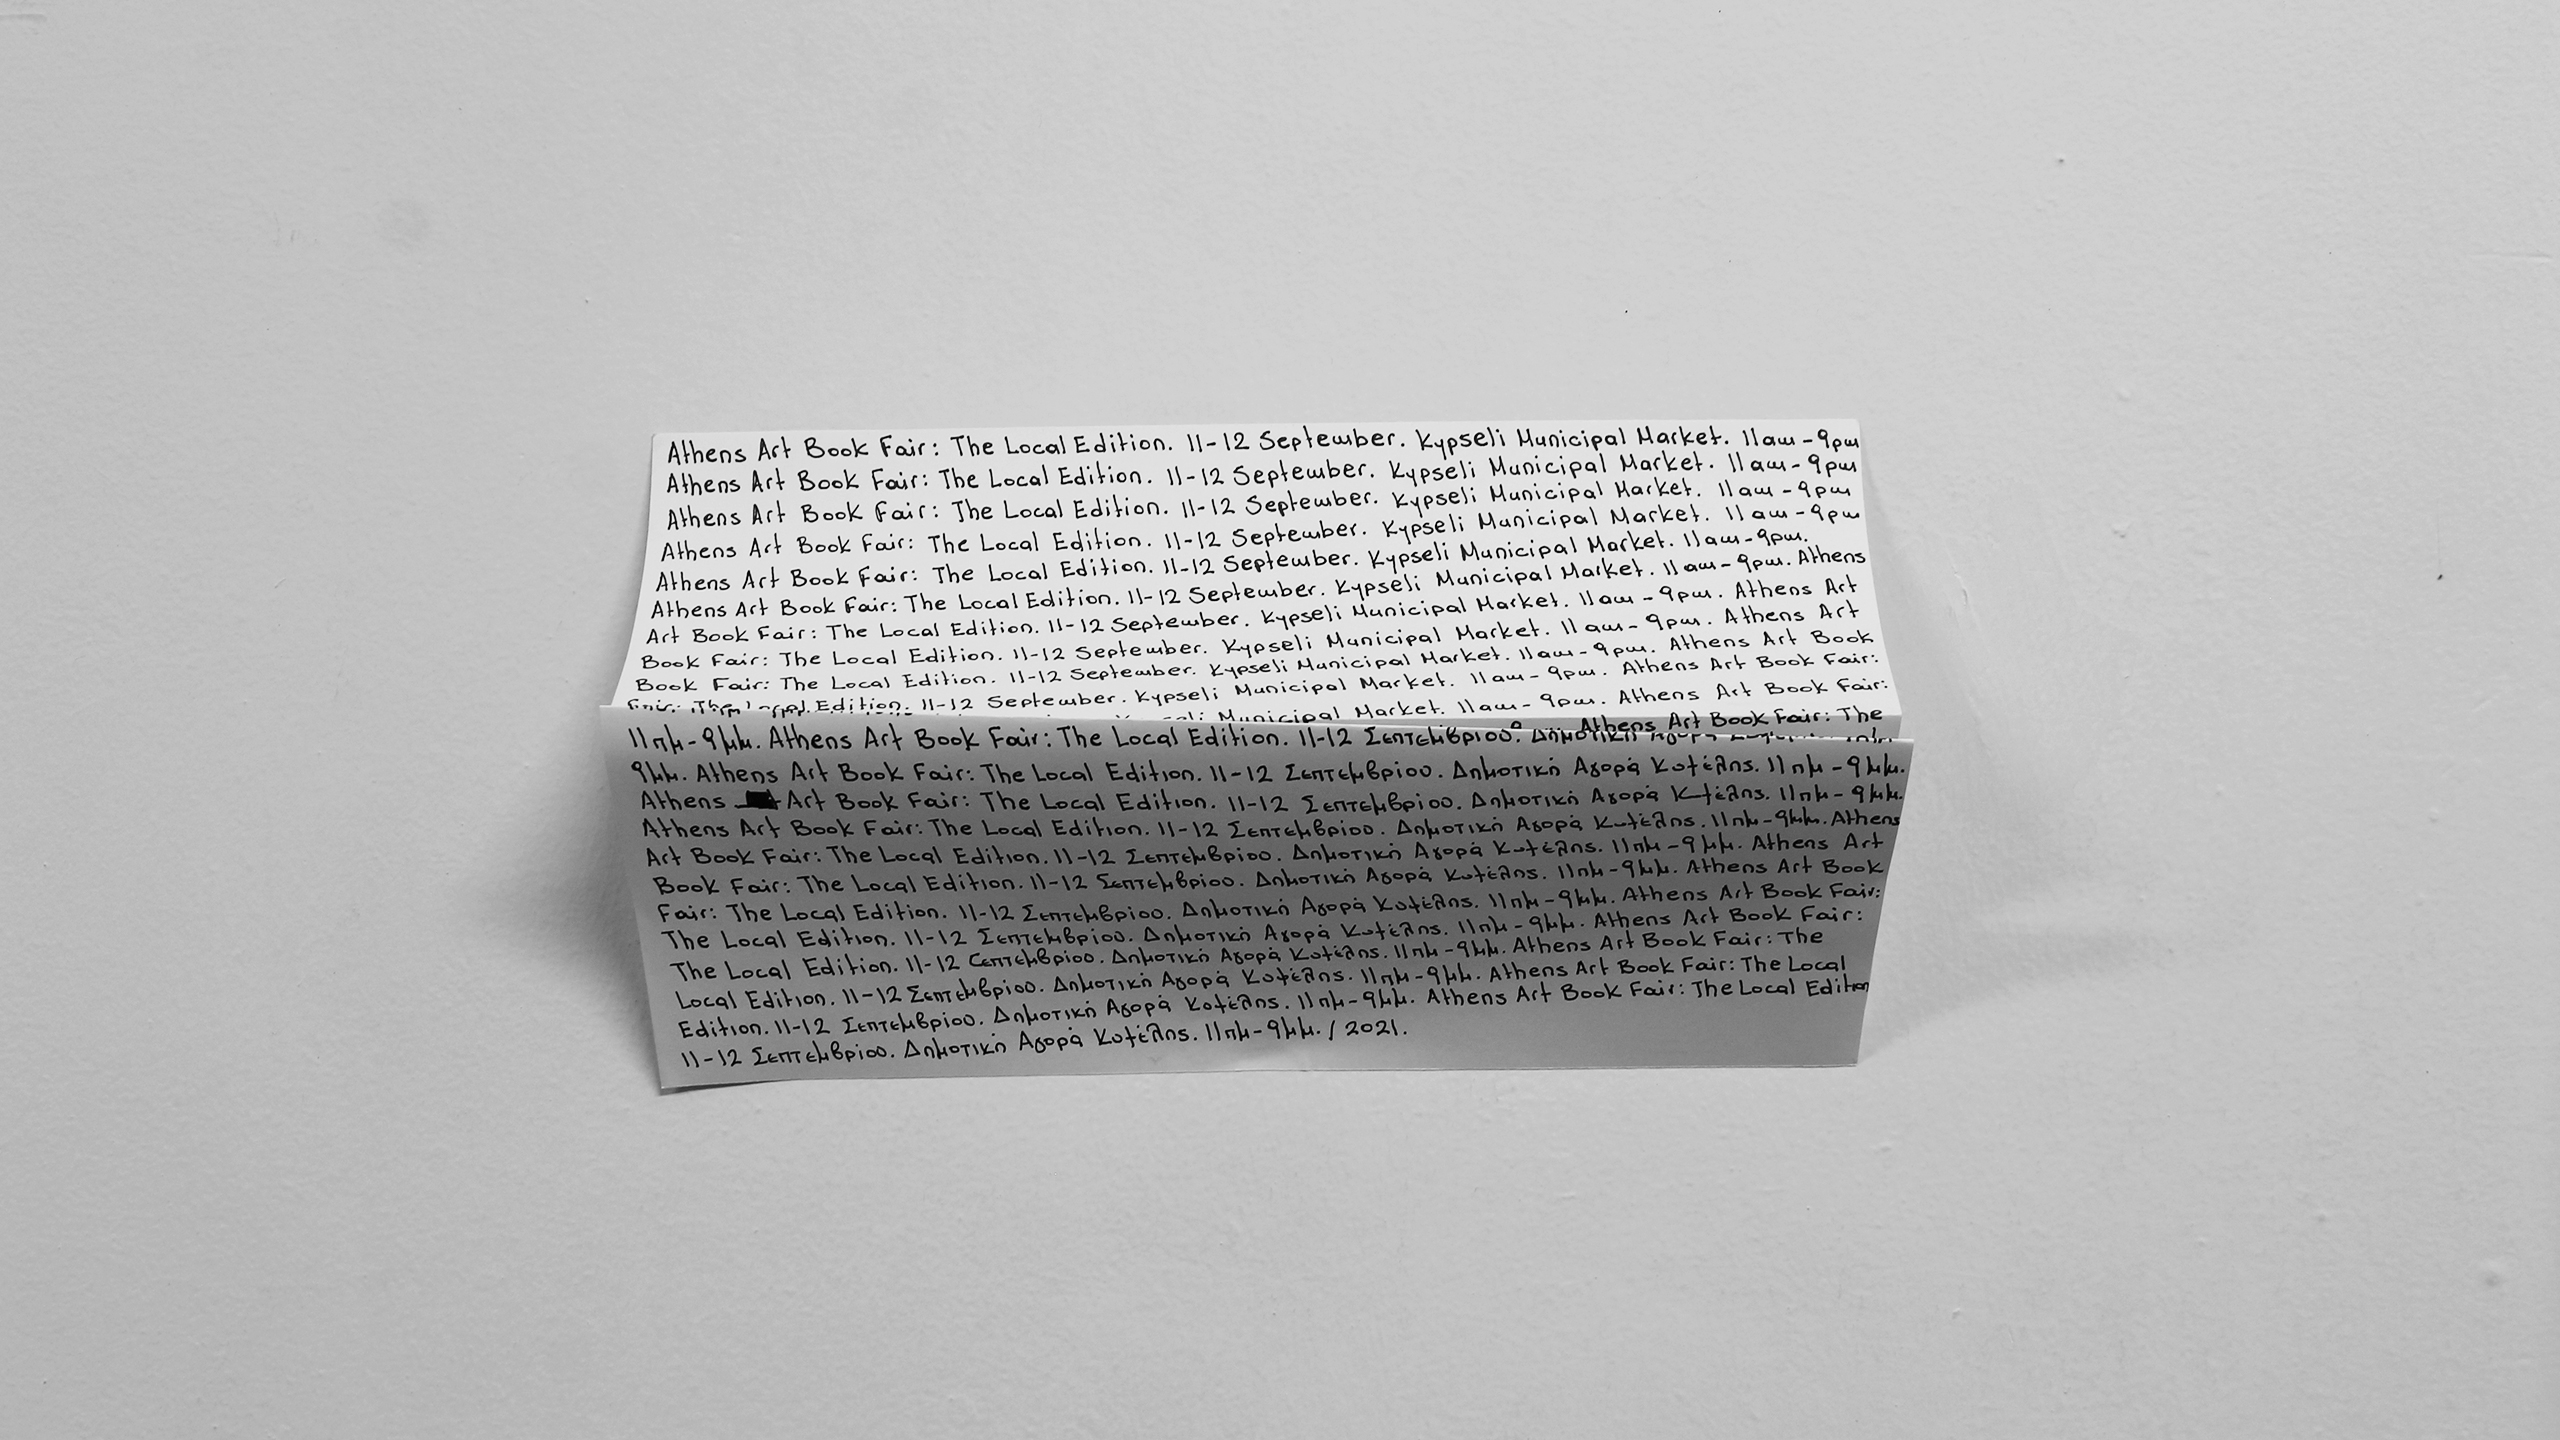 Athens Art Book Fair: The Local Edition. 11-12 September. Kypseli Municipal Market. 11am-9pm
Athens Art Book Fair: The Local Edition. 11-12 September. Kypseli Municipal Market. 11am-9pm
Athens Art Book Fair: The Local Edition. 11-12 September. Kypseli Municipal Market. 11am-9pm
Athens Art Book Fair: The Local Edition. 11-12 September. Kypseli Municipal Market. 11am-9pm
Athens Art Book Fair: The Local Edition. 11-12 September. Kypseli Municipal Market. 11am-9pm.
Athens Art Book Fair: The Local Edition. 11-12 September. Kypseli Municipal Market. 11am-9pm. Athens
Art Book Fair: The Local Edition. 11-12 September. Kypseli Municipal Market. 11am-9pm. Athens Art
Book Fair: The Local Edition. 11-12 September. Kypseli Municipal Market. 11am-9pm. Athens Art
Book Fair: The Local Edition. 11-12 September. Kypseli Municipal Market. 11am-9pm. Athens Art Book
Fair: The Local Edition. 11-12 September. Kypseli Municipal Market. 11am-9pm. Athens Art Book Fair:
Municipal Market. 11am-9pm. Athens Art Book Fair:
Athens Art Book Fair: The
11πμ-9μμ. Athens Art Book Fair: The Local Edition. 11-12 Σεπτεμβρίου. Δημοτική Αγορά
9μμ. Athens Art Book Fair: The Local Edition. 11-12 Σεπτεμβρίου. Δημοτική Αγορά Κυψέλης. 11πμ-9μμ.
Athens Art Book Fair: The Local Edition. 11-12 Σεπτεμβρίου. Δημοτική Αγορά Κυψέλης. 11πμ-9μμ.
Athens Art Book Fair: The Local Edition. 11-12 Σεπτεμβρίου. Δημοτική Αγορά Κυψέλης. 11πμ-9μμ. Athens
Art Book Fair: The Local Edition. 11-12 Σεπτεμβρίου. Δημοτική Αγορά Κυψέλης. 11πμ-9μμ. Athens Art
Book Fair: The Local Edition. 11-12 Σεπτεμβρίου. Δημοτική Αγορά Κυψέλης. 11πμ-9μμ. Athens Art Book
Fair: The Local Edition. 11-12 Σεπτεμβρίου. Δημοτική Αγορά Κυψέλης. 11πμ-9μμ. Athens Art Book Fair:
The Local Edition. 11-12 Σεπτεμβρίου. Δημοτική Αγορά Κυψέλης. 11πμ-9μμ. Athens Art Book Fair:
The Local Edition. 11-12 Σεπτεμβρίου. Δημοτική Αγορά Κυψέλης. 11πμ-9μμ. Athens Art Book Fair: The
Local Edition. 11-12 Σεπτεμβρίου. Δημοτική Αγορά Κυψέλης. 11πμ-9μμ. Athens Art Book Fair: The Local
Edition. 11-12 Σεπτεμβρίου. Δημοτική Αγορά Κυψέλης. 11πμ-9μμ. Athens Art Book Fair: The Local Edition
11-12 Σεπτεμβρίου. Δημοτική Αγορά Κυψέλης. 11πμ-9μμ. / 2021.